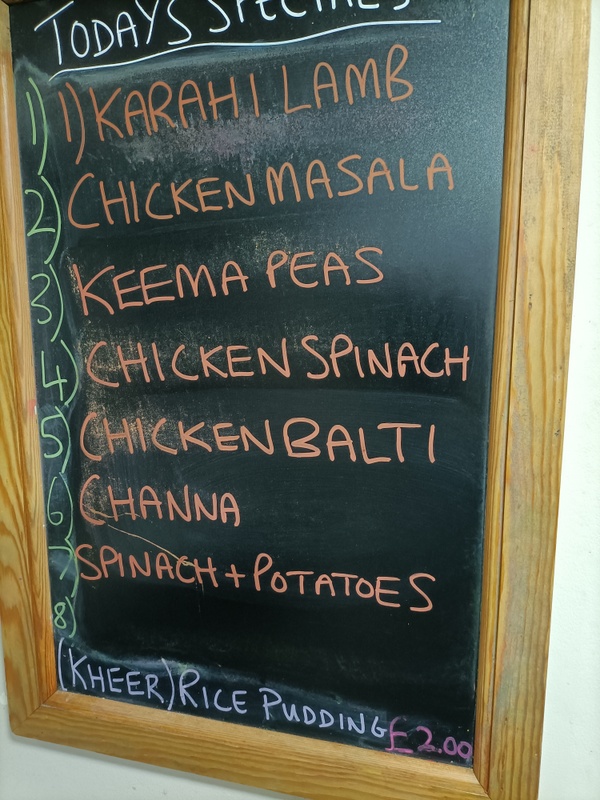 TODAYS SPECIALS
1) 1) KARAHI LAMB
2) CHICKEN MASALA
3) KEEMA PEAS
4) CHICKEN SPINACH
5) CHICKEN BALTI
6) CHANNA
7) SPINACH + POTATOES
8)
(KHEER) RICE PUDDING £2.00